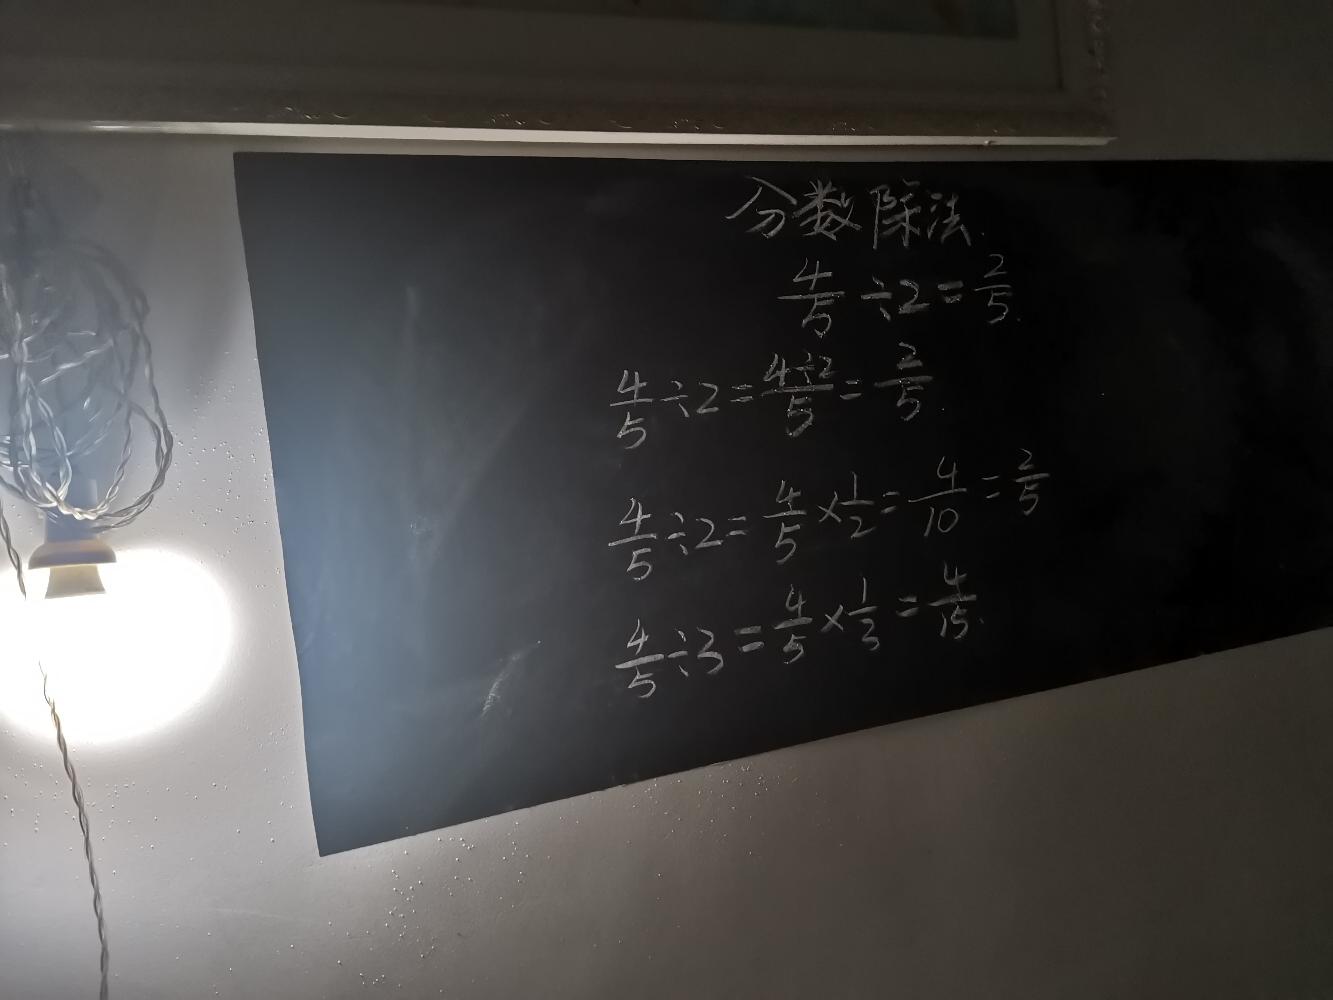 分数除法.
4/5 ÷2=2/5.
4/5÷2=4÷2/5=2/5.
4/5÷2=4/5×1/2=4/10=2/5
4/5÷3=4/5×1/3=4/15.